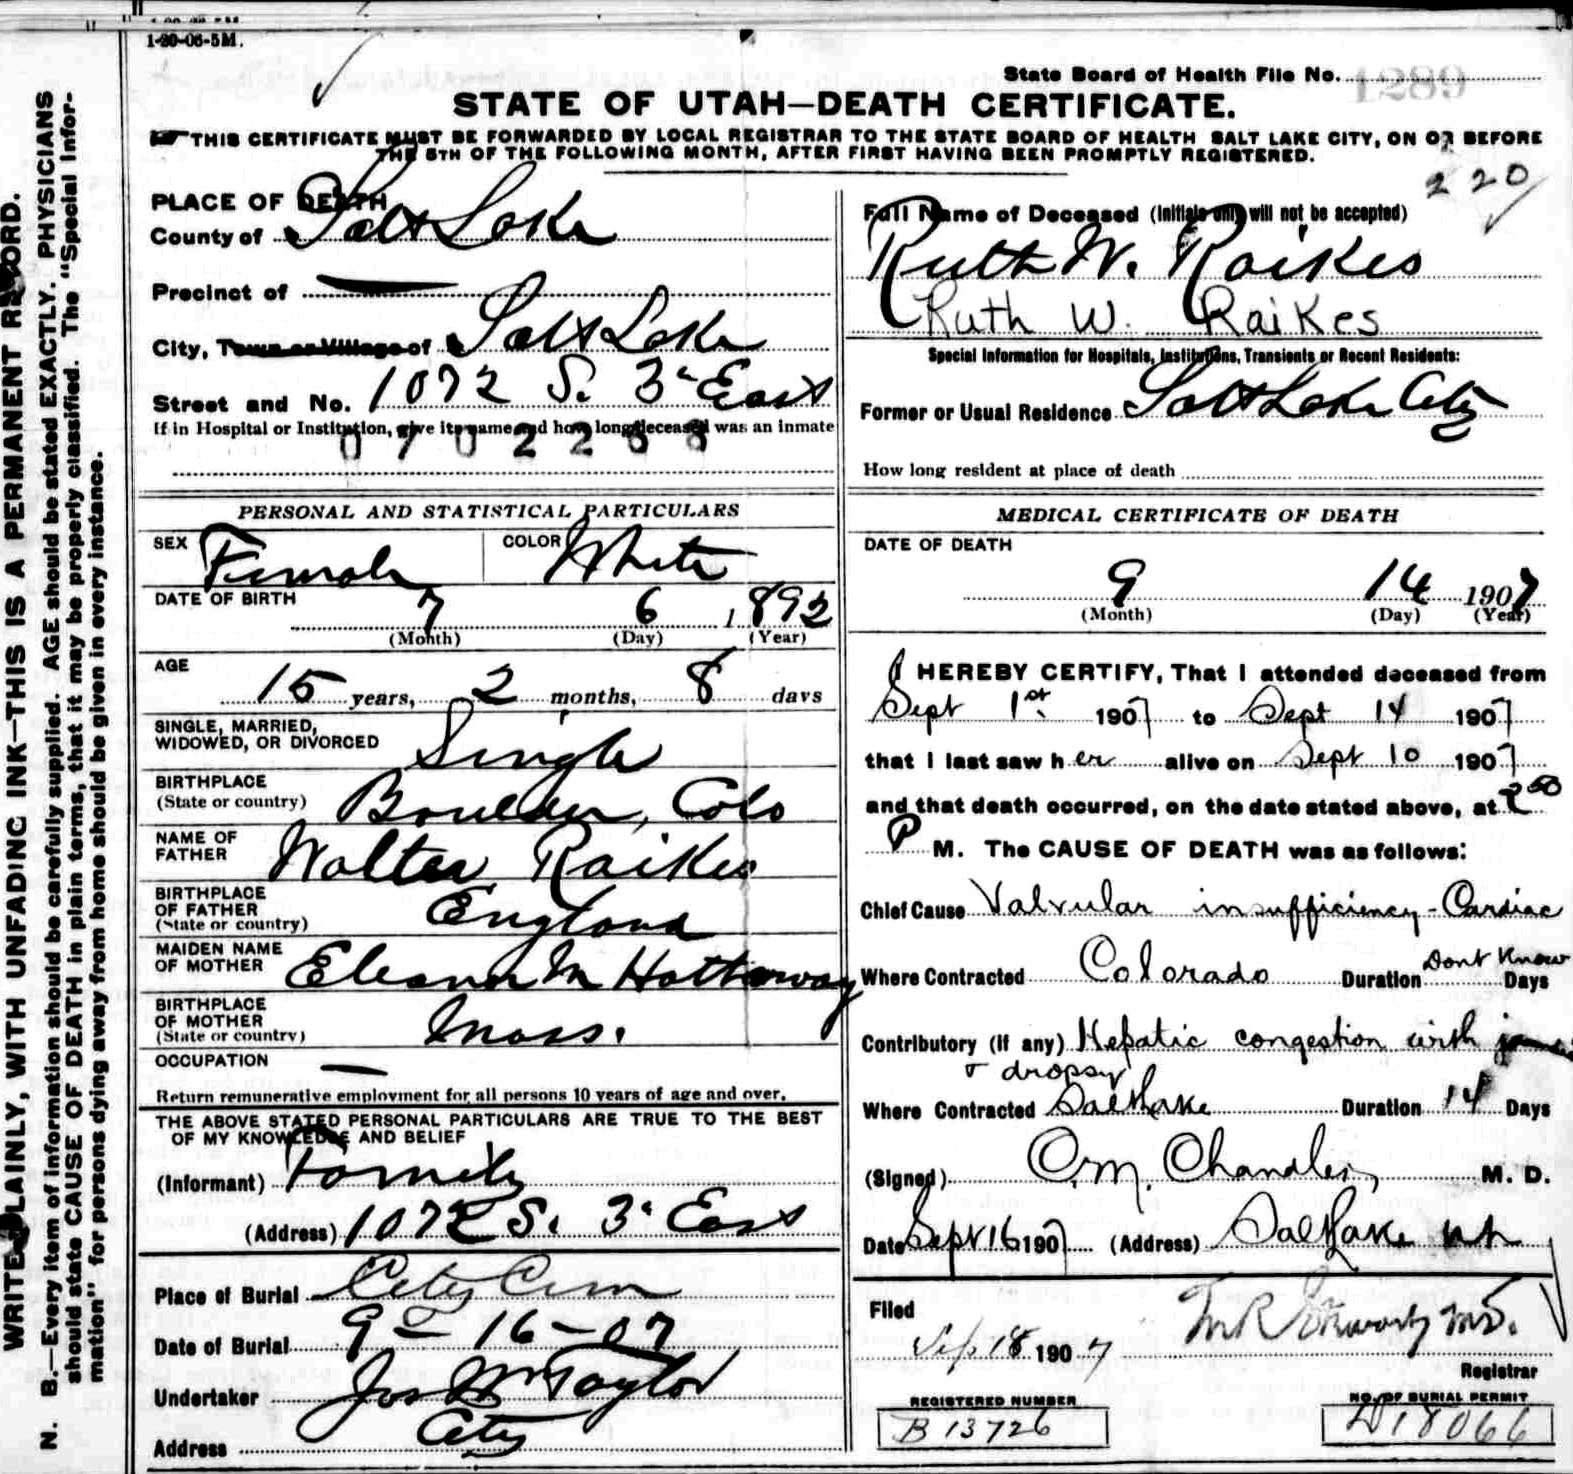 1-20-06-5M.
State Board of Health File No. 1289
STATE OF UTAH—DEATH CERTIFICATE.
THIS CERTIFICATE MUST BE FORWARDED BY LOCAL REGISTRAR TO THE STATE BOARD OF HEALTH SALT LAKE CITY, ON OR BEFORE
THE 5TH OF THE FOLLOWING MONTH, AFTER FIRST HAVING BEEN PROMPTLY REGISTERED.
220
WRITE PLAINLY, WITH UNFADING INK—THIS IS A PERMANENT RECORD.
N. B.—Every item of information should be carefully supplied. AGE should be stated EXACTLY. PHYSICIANS
should state CAUSE OF DEATH in plain terms, that it may be properly classified. The "Special Infor-
mation" for persons dying away from home should be given in every instance.
PLACE OF DEATH
County of Salt Lake
Precinct of —
City, Town or Village of Salt Lake
Street and No. 1072 S. 3d East
If in Hospital or Institution, give its name and how long deceased was an inmate
0702268
PERSONAL AND STATISTICAL PARTICULARS
SEX Female COLOR White
DATE OF BIRTH 7 6 1892
(Month) (Day) (Year)
AGE 15 years, 2 months, 8 days
SINGLE, MARRIED,
WIDOWED, OR DIVORCED Single
BIRTHPLACE
(State or country) Boulder, Colo
NAME OF
FATHER Walter Raikes
BIRTHPLACE
OF FATHER
(State or country) England
MAIDEN NAME
OF MOTHER Eleanor M Hathaway
BIRTHPLACE
OF MOTHER
(State or country) Mass.
OCCUPATION —
Return remunerative employment for all persons 10 years of age and over.
THE ABOVE STATED PERSONAL PARTICULARS ARE TRUE TO THE BEST
OF MY KNOWLEDGE AND BELIEF
(Informant) Family
(Address) 1072 S. 3d East
Place of Burial City Cem
Date of Burial 9-16-07
Undertaker Jos Wm Taylor
Address City
Full Name of Deceased (Initials only will not be accepted)
Ruth W. Raikes
Ruth W. Raikes
Special Information for Hospitals, Institutions, Transients or Recent Residents:
Former or Usual Residence Salt Lake City
How long resident at place of death
MEDICAL CERTIFICATE OF DEATH
DATE OF DEATH
9 14 1907
(Month) (Day) (Year)
I HEREBY CERTIFY, That I attended deceased from
Sept 1st. 1907 to Sept 14 1907
that I last saw her alive on Sept 10 1907
and that death occurred, on the date stated above, at 2 50
P M. The CAUSE OF DEATH was as follows:
Chief Cause Valvular insufficiency - Cardiac
Where Contracted Colorado Duration Dont Know Days
Contributory (if any) Hepatic congestion with
& dropsy
Where Contracted Salt Lake Duration 14 Days
(Signed) O.M. Chandler, M. D.
Date Sept 16 1907 (Address) Salt Lake Ut
Filed
Sep 18 1907 M.D.
Registrar
REGISTERED NUMBER
B 13726
NO. OF BURIAL PERMIT
D18066